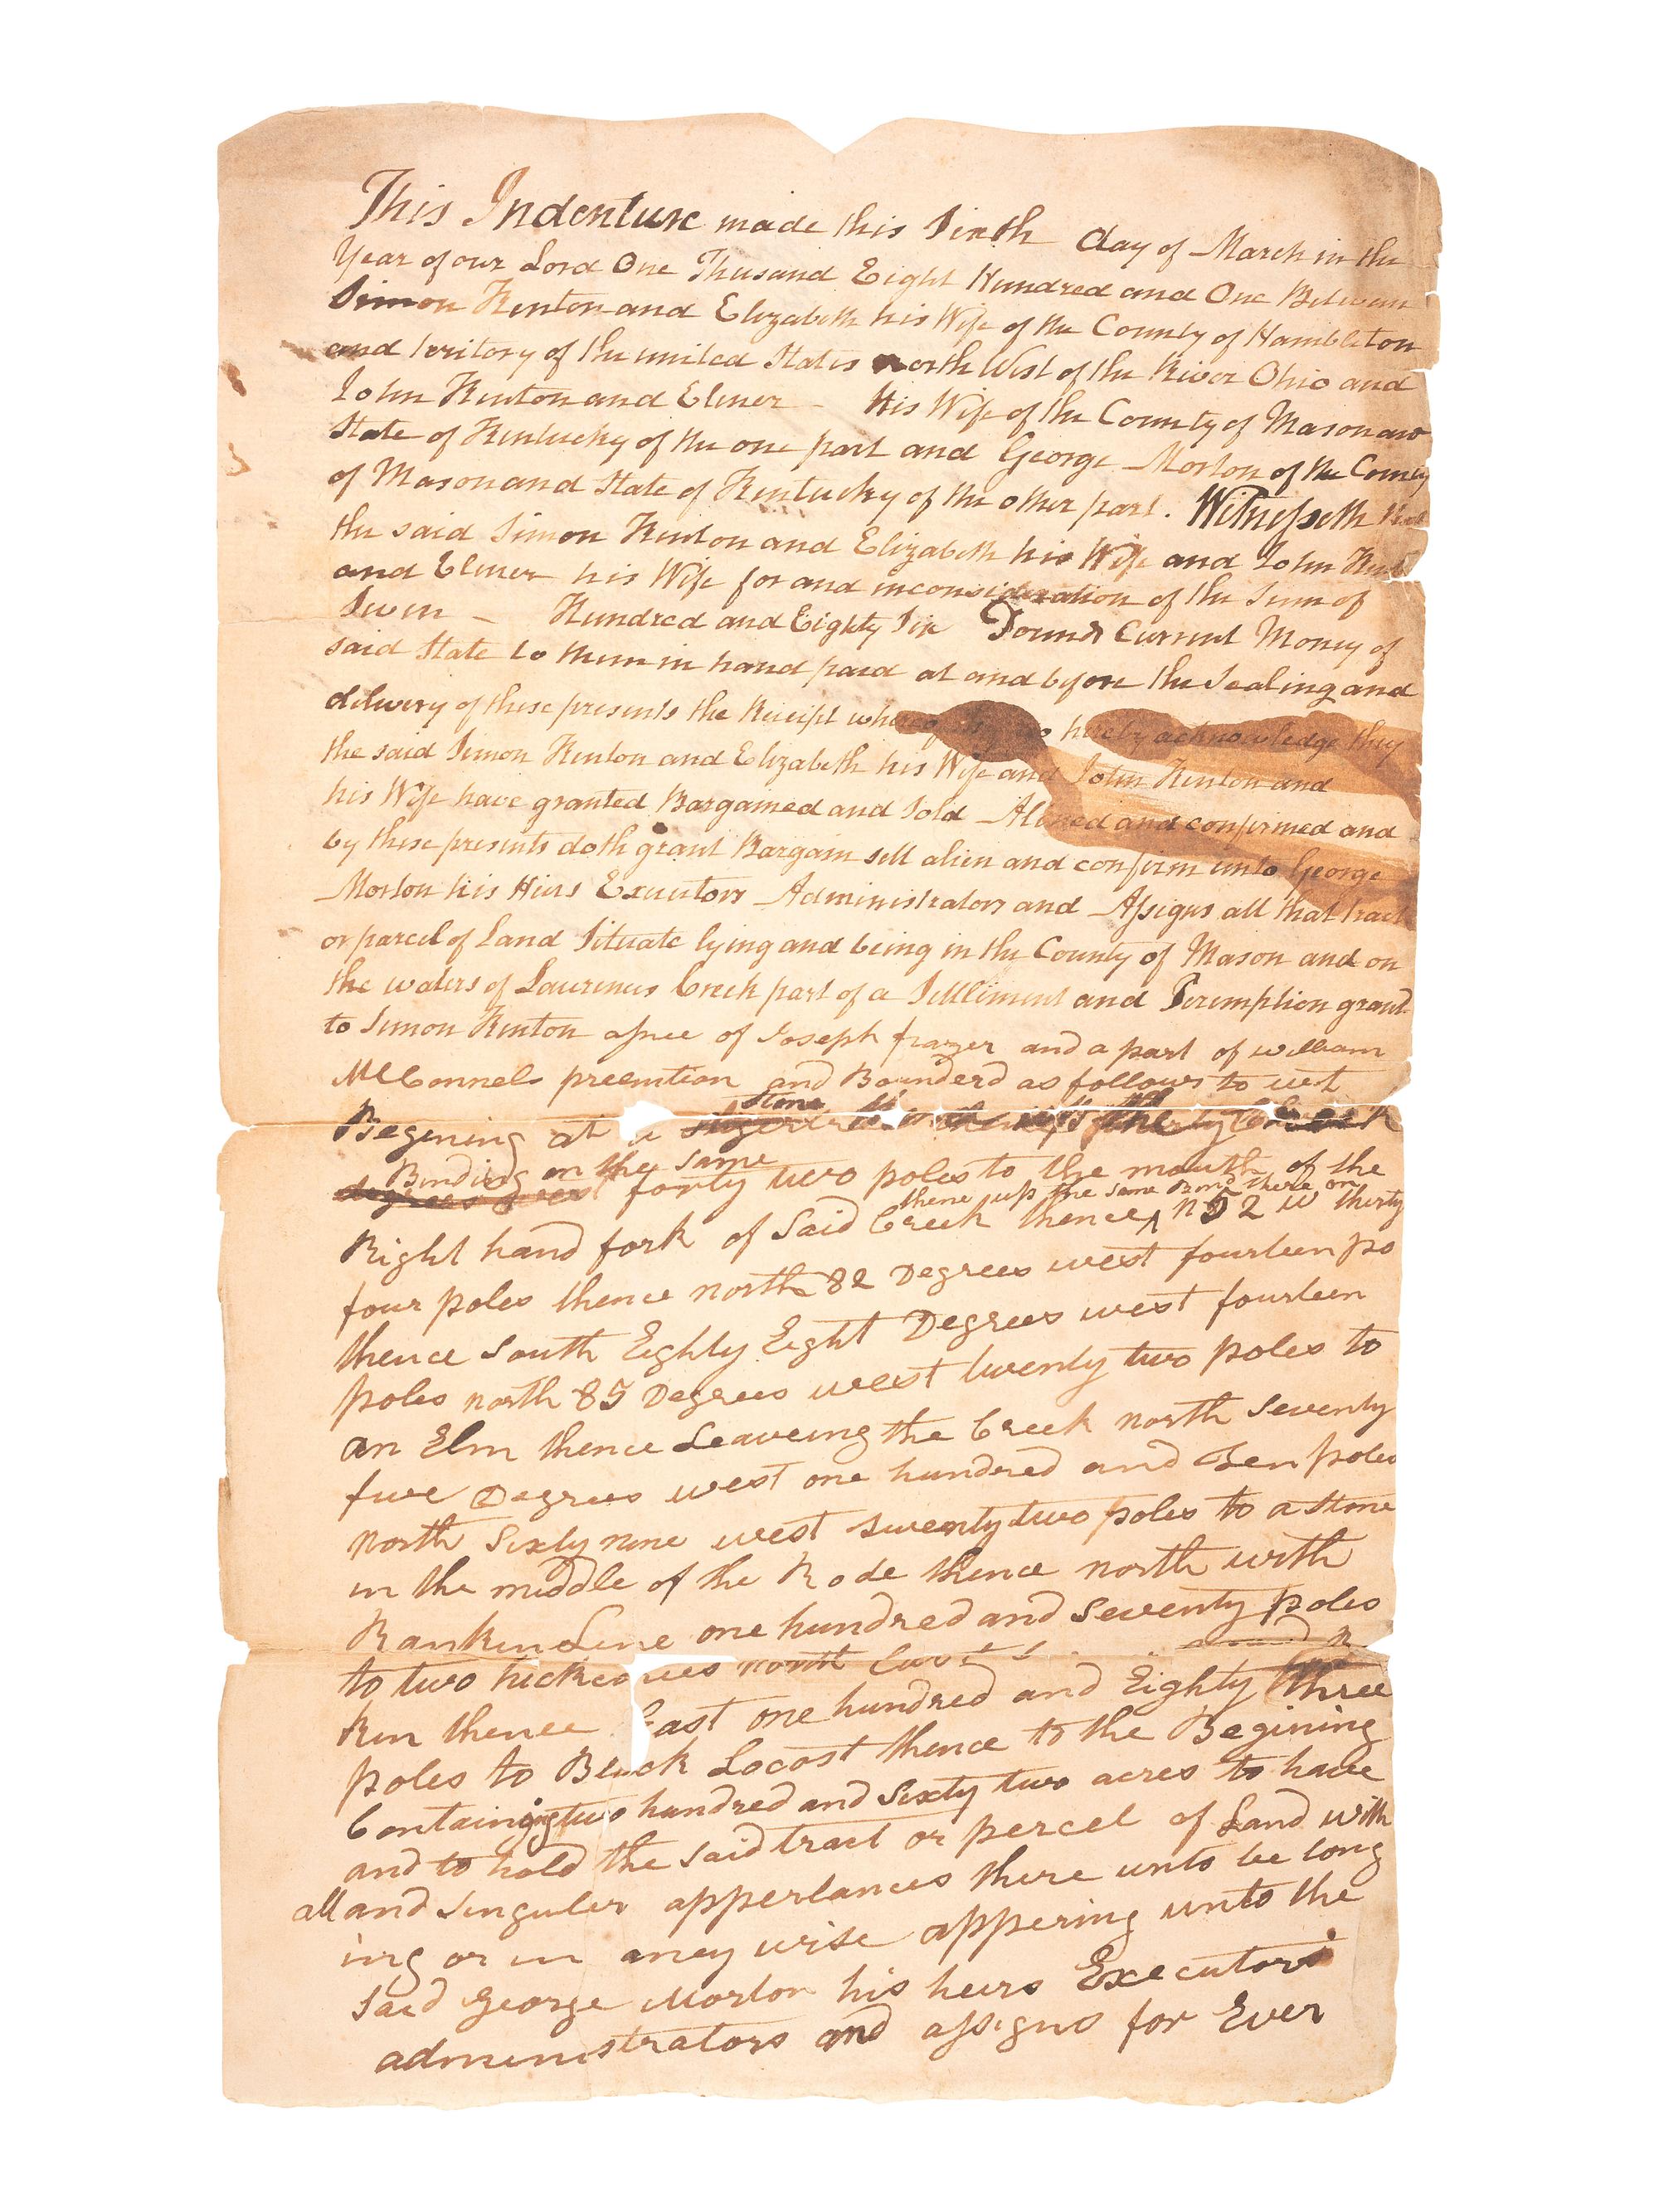 This Indenture made this Sixth day of March in the
Year of our Lord One Thusand Eight Hundred and One Between
Simon Kenton and Elizabeth his Wife of the County of Hambleton
and teritory of the united States north West of the River Ohio and
John Kenton and Elener - His Wife of the County of Mason and
State of Kentucky of the one part and George Morton of the County
of Mason and State of Kentucky of the other part. Witnesseth that
the said Simon Kenton and Elizabeth his Wife and John
and Elener his Wife for and inconsideration of the Sum of
Seven - Hundred and Eighty Six Pounds Current Money of
said State to them in hand paid at and before the Sealing and
delivery of these presents the Receipt whereof do hereby acknowledge they
the said Simon Kenton and Elizabeth his Wife and John Kenton and
his Wife have granted Bargained and Sold Aliened and confirmed and
by these presents doth grant Bargain sell alien and confirm unto George
Morton his Heirs Executors Administrators and Assigns all that tract
or parcel of Land Situate lying and being in the County of Mason and on
the waters of Laurences Creek part of a Settliment and Peremption grant
to Simon Kenton assnee of Joseph frazer and a part of william
McConnels preemtion and Bounderd as follows to wit
Stone
Begining at a
Binding on the same
forty two poles to the mouth of the
thence up the same Bind there on
Right hand fork of Said Creek thence ^ n 52 w thirty
four poles thence north 82 Degrees west fourteen po
thence South Eighty Eight Degrees west fourteen
poles north 85 Degrees west twenty two poles to
an Elm thence Leaveing the Creek north Seventy
five Degrees west one hundred and Ten poles
north Sixty nine west twenty two poles to a Stone
in the middle of the Rode thence north with
Rankin Line one hundred and Seventy poles
to two hickories north
Run thence East one hundred and Eighty three
poles to Black Locost thence to the Begining
Containing two hundred and Sixty two acres to have
and to hold the said tract or percel of Land with
all and Singuler appertances there unto be long
ing or in aney wise appering unto the
Said George Morton his heirs Executors
administrators and assigns for Ever